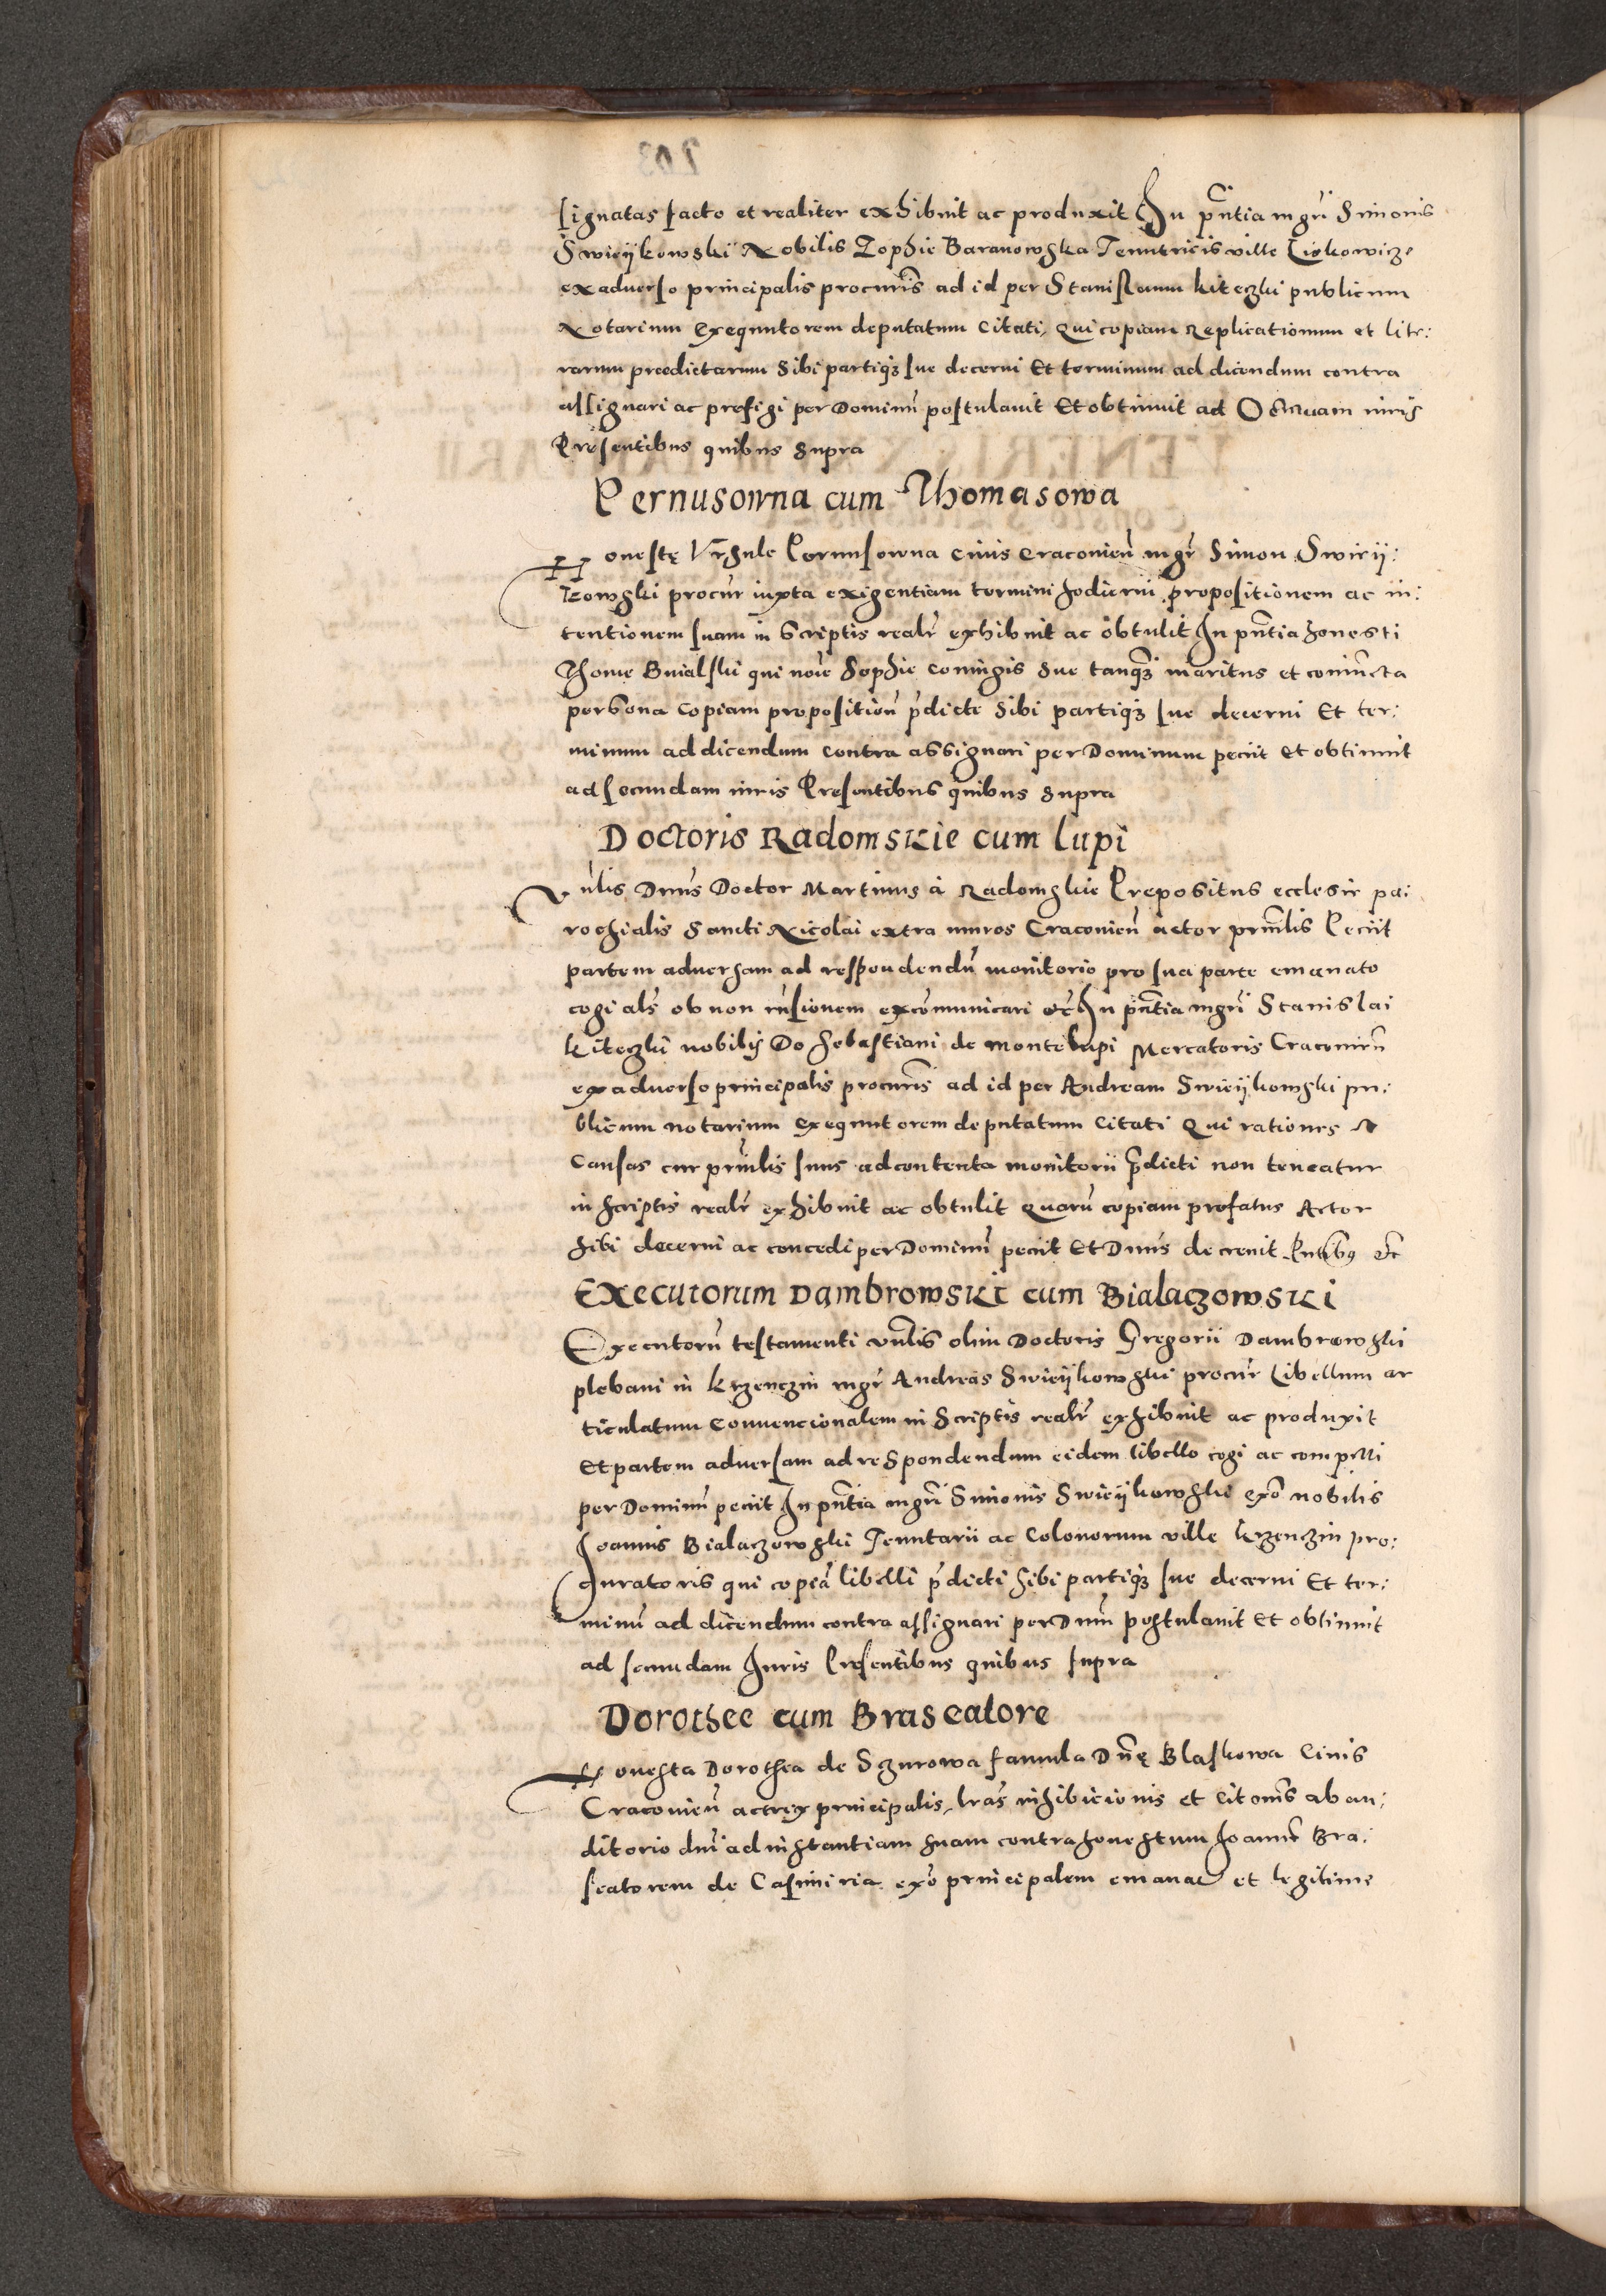 signatas facto et realiter exhibuit ac produxit In pñtia mgri Simonis
Swieÿkowski Nobilis Zophie Baranowska Tenutricis ville Liskowicze
ex adverso principalis procuris ad id per Stanislaum kiteczki publicum
Notarium Exequutorem deputatum Citati, Qui copiam Replicationum et lite:
rarum praedictarum Sibi partiqz sue decerni Et terminum ad dicendum contra
assignari ac prefigi per Dominũ postulavit Et obtinuit ad Octauam iuris
Presentibus quibus supra
Pernusowna cum Thomasowa
Honestę Vrsule Pernusowna Ciuis Cracovieñ mgr Simon Swieÿ:
kowski procur iuxta exigentiam termini hodierni propositionem ac in:
tentionem suam in Scriptis realr exhibuit ac obtulit In pñtia honesti
Thome Buialski qui noĩe Sophie Coniugis sue tanqz maritus et coniũcta
persona Copiam propositioñ p̃dicte Sibi partiqz sue decerni Et ter:
minum ad dicendum contra assignari per Dominum peciit Et obtinuit
ad secundam iuris Presentibus quibus supra
Doctoris Radomskie cum lupi
Vñlis Dñus Doctor Martinus à Radomskie Prepositus ecclesie pa:
rochialis Sancti Nicolai extra muros Cracovieñ actor prinlis Peciit
partem adversam ad respondendũ monitorio pro sua parte emanato
cogi als ob non rñsionem excõmunicari etc̃ In pñtia mgri Stanislai
kiteczki nobilis Do Sebastiani de monte lupi Mercatoris Cracovieñ
ex adverso principalis procuris ad id per Andream Swieÿkowski pu:
blicum notarium Exequutorem deputatum Citati Qui rationes et
Causas cur prinlis suus ad contenta monitorii p̃dicti non teneatur
in scriptis realr exhibuit ac obtulit Quarũ copiam prefatus Actor
sibi decerni ac concedi per Dominũ peciit Et Dñus decrevit Pñtibus etc̃
Executorum Dambrowski cum Bialaczowski
Executorũ testamenti vñlis olim Doctoris Gregorii Dambrowski
plebani in krzenczin mgr Andreas Swieÿkowski procur Libellum ar
ticulatum Convencionalem in Scriptis realr exhibuit ac produxit
Et partem adversam ad respondendum eidem libello cogi ac compelli
per Dominũ peciit In pñtia mgri Simonis Swieÿkowski exõ nobilis
Joannis Bialaczowski Tenutarii ac Colonorum ville krzenczin pro:
curatoris qui copiã libelli p̃dicti sibi partiqz sue decerni Et ter:
minũ ad dicendum contra assignari per Dnũ postulavit Et obtinuit
ad secundam Juris Presentibus quibus supra
Dorothee cum Braseatore
Honesta Dorothea de Szurowa famula Dñę Blaskowa Civis
Cracovieñ actrix principalis, lras inhibicionis et Citonis ab au:
ditorio dni ad instantiam suam contra honestum Joannẽ Bra:
seatorem de Casimiria exõ principalem emanat et legitime